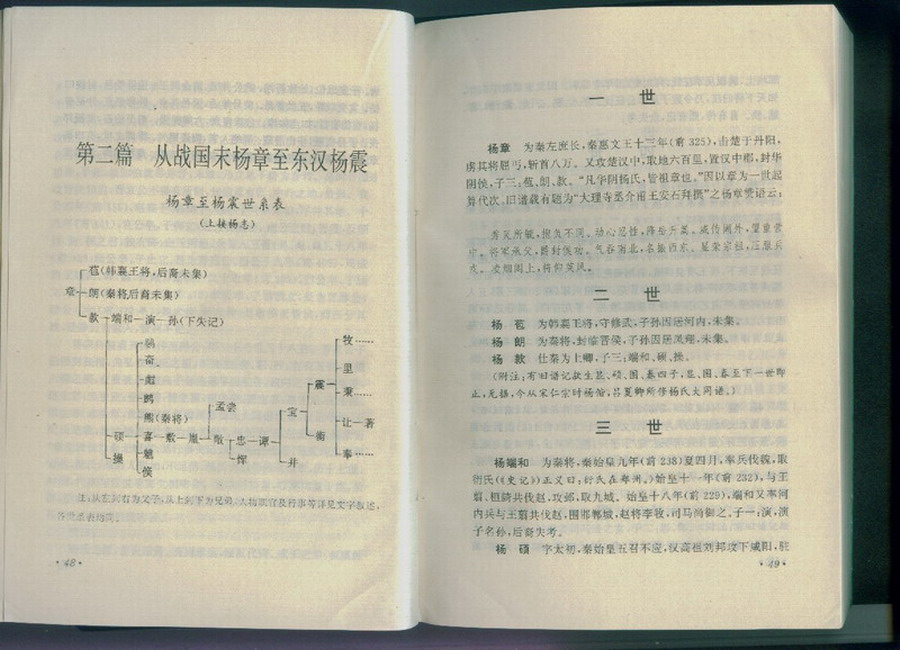 第二篇 从战国末杨章至东汉杨震
杨章至杨震世系表
(上接杨志)
苞(韩襄王将,后裔未集)
章 朗(秦将,后裔未集)
款 端和 演 孙(下失记)
奋
彪
熊(秦将)
硕 喜 敷 胤
操 魁
孟尝
敞 忠 谭
恽
宝 震
并 衡
牧……
里
秉……
让 著
奉……
注:从左到右为父子,从上到下为兄弟,人物职官及行事等详见文字叙述,
各世系表均同。
·48·
一 世
杨章 为秦左庶长,秦惠文王十三年(前325),击楚于丹阳,
虏其将屈丐,斩首八万。又攻楚汉中,取地六百里,置汉中郡,封华
阴侯,子三:苞、朗、款。“凡华阴杨氏,皆祖章也。”因以章为一世起
算代次。旧谱载有题为“大理寺丞介甫王安石拜撰”之杨章赞语云:
秀灵所毓,抱负不同。动心忍性,降岳升嵩。威传阃外,望重管
中。将军承父,爵封侯功。气吞南北,名振西东。显荣宗祖,压服兵
戎。凌烟阁上,将仰英风。
二 世
杨 苞 为韩襄王将,守修武,子孙因居河内,未集。
杨 朗 为秦将,封临晋侯,子孙因居冯翊,未集。
杨 款 仕秦为上卿,子三:端和、硕、操。
(附注:有旧谱记款生显、硕、图、泰四子,显、图、泰至下一世即
止,无据,今从宋仁宗时杨偕、吕夏卿所修杨氏大同谱。)
三 世
杨端和 为秦将,秦始皇九年(前238)夏四月,率兵伐魏,取
衍氏(《史记》正义曰:衍氏在郑州。)始皇十一年(前232),与王
翦、桓齮共伐赵,攻邺,取九城。始皇十八年(前229),端和又率河
内兵与王翦共伐赵,围邯郸城,赵将李牧、司马尚御之。子一:演,演
子名孙,后裔失考。
杨 硕 字太初,秦始皇五召不应,汉高祖刘邦攻下咸阳,驻
·49·